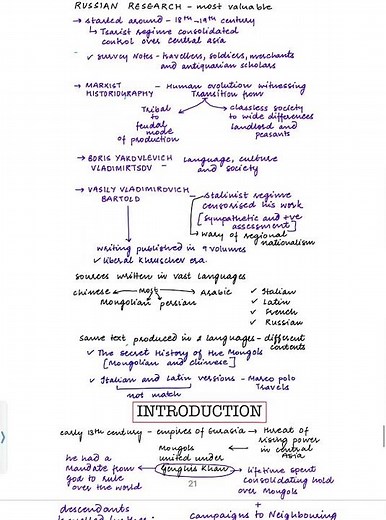 RUSSIAN RESEARCH - most valuable
→ started around - 18th -19th century
↳ Tsarist regime consolidated
control over central asia
✓ survey Notes - travellers, soldiers, merchants
and antiquarian scholars
→ MARXIST - Human evolution witnessing
HISTORIOGRAPHY Transition from
Tribal → classless society
to to wide differences
feudal landlord and
mode peasants
of production
→ BORIS YAKOVLEVICH - Language, culture
VLADIMIRTSOV and society
→ VASILY VLADIMIROVICH Stalinist regime
BARTOLD censorised his work
[sympathetic and +ve
assessment]
→ wary of regional
nationalism
writing published in 9 volumes
✓ liberal Khruschev era.
sources written in vast languages
chinese ← most → Arabic ✓ Italian
Mongolian persian ✓ Latin
✓ French
✓ Russian
same text produced in 2 languages - different
contents
✓ The Secret History of the Mongols
[Mongolian and chinese]
✓ Italian and Latin versions - Marco polo
Travels
not match
INTRODUCTION
early 13th century - empires of Eurasia → threat of
rising power
in central
Asia
Mongols ←
united under
he had a ← Genghis Khan → lifetime spent
Mandate from consolidating
god to rule hold
over the world over Mongols
21
descendants +
campaigns to Neighbouring